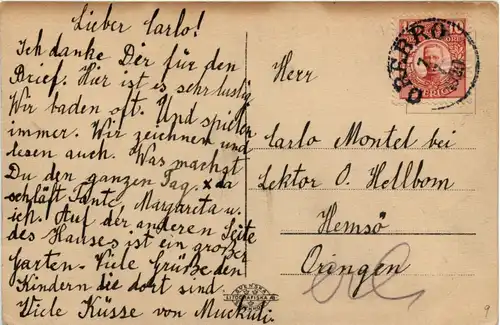 Lieber Carlo!
Ich danke Dir für den
Brief. Hier ist es sehr lustig
Wir baden oft. Und spielen
immer. Wir zeichnen und
lesen auch. Was machst
Du den ganzen Tag. x da
schläft Tante Margareta u.
ich. Auf der anderen Seite
des Hauses ist ein großer
Garten. Viele Grüße den
Kindern die dort sind.
Viele Küsse von Muckili.
Herr
Carlo Montel bei
Lektor O. Hellbom
Hemsö
Öringen
ÖREBRO
10 10
SVERIGE
SVENSKA
LITOGRAFISKA AB
9